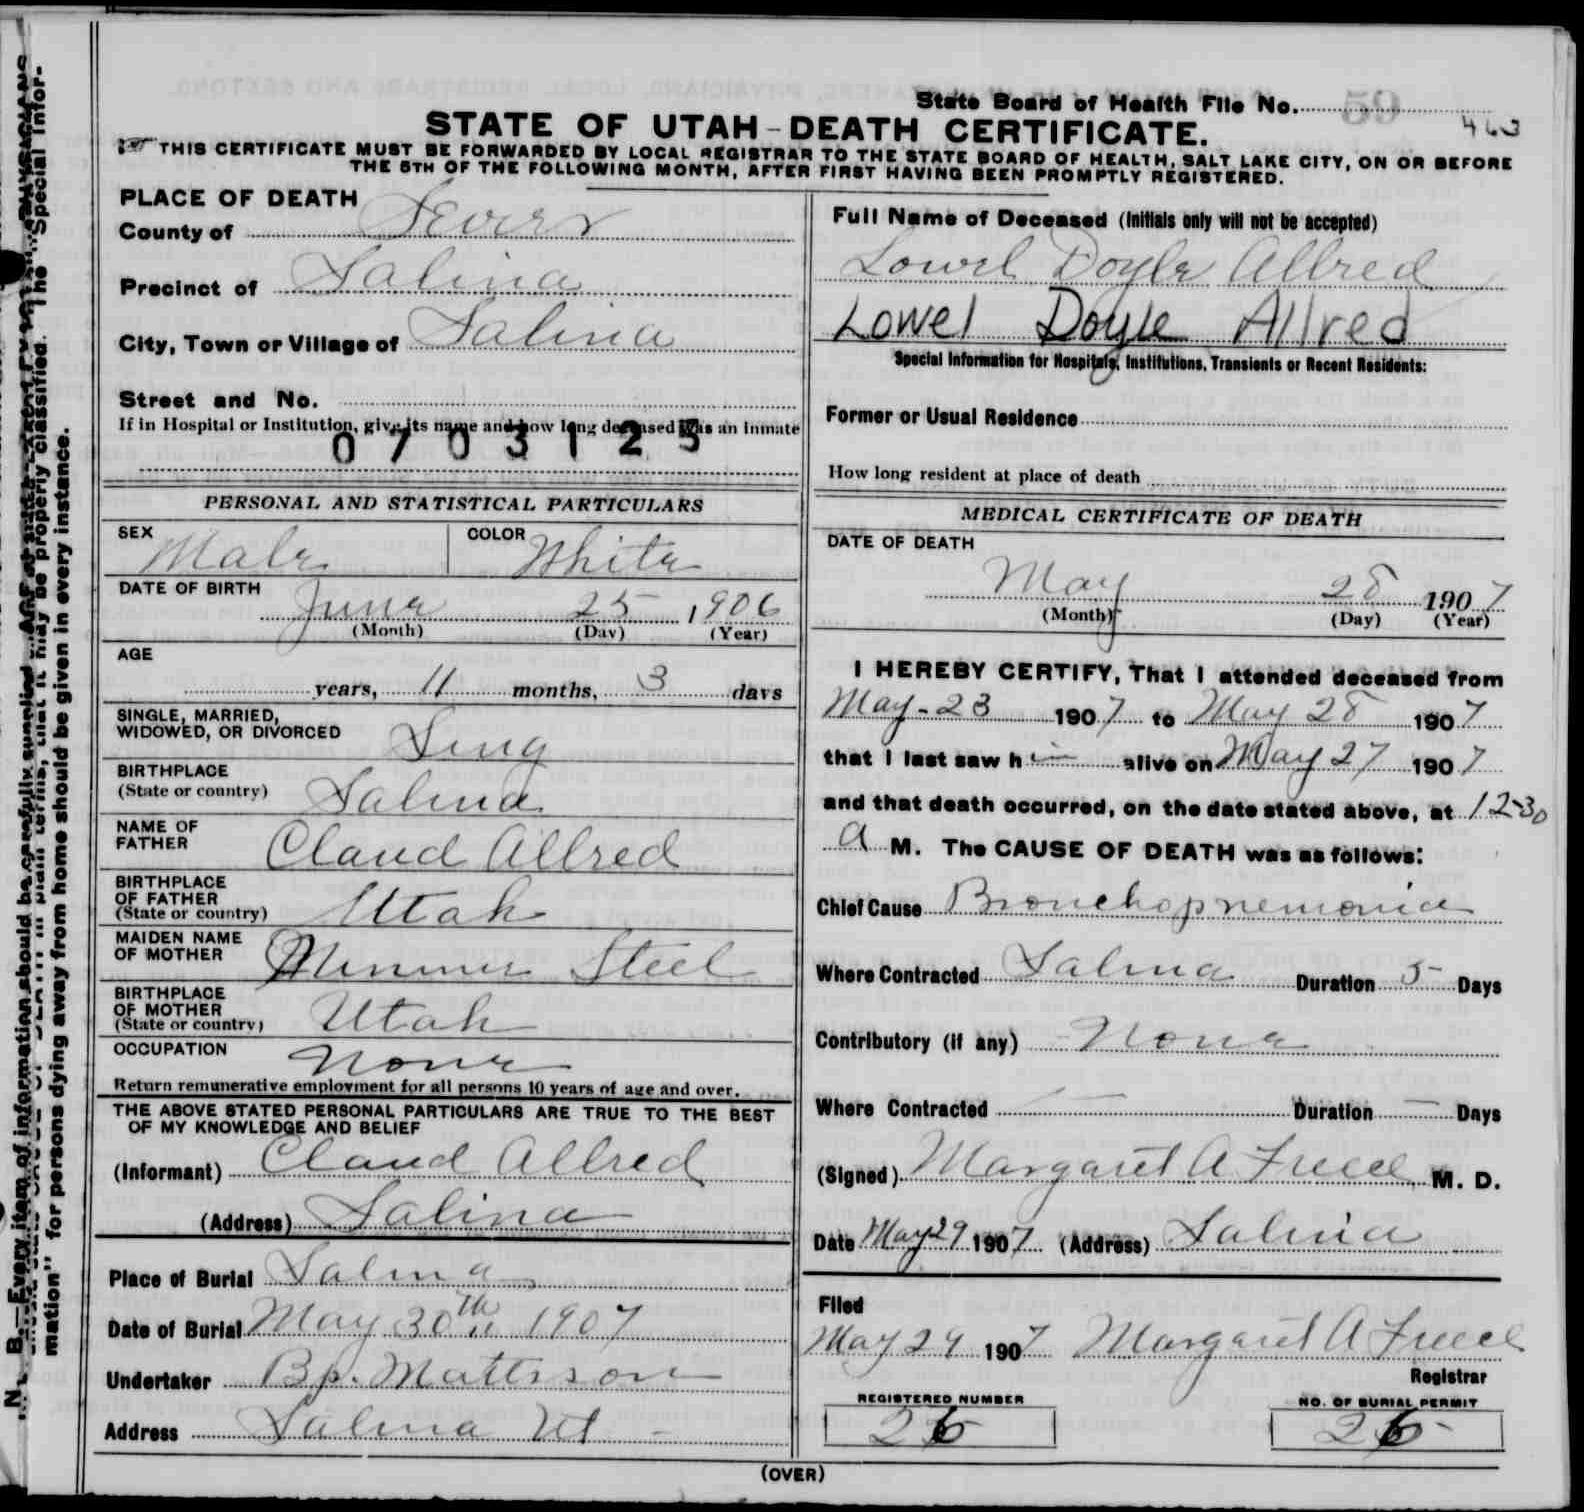 State Board of Health File No.
463
STATE OF UTAH - DEATH CERTIFICATE.
THIS CERTIFICATE MUST BE FORWARDED BY LOCAL REGISTRAR TO THE STATE BOARD OF HEALTH, SALT LAKE CITY, ON OR BEFORE
THE 5TH OF THE FOLLOWING MONTH, AFTER FIRST HAVING BEEN PROMPTLY REGISTERED.
PLACE OF DEATH
County of Sevier
Precinct of Salina
City, Town or Village of Salina
Street and No.
If in Hospital or Institution, give its name and how long deceased was an inmate
0703125
PERSONAL AND STATISTICAL PARTICULARS
SEX Male COLOR White
DATE OF BIRTH
June 25 1906
(Month) (Day) (Year)
AGE
years, 11 months, 3 days
SINGLE, MARRIED,
WIDOWED, OR DIVORCED Sing
BIRTHPLACE
(State or country) Salina
NAME OF
FATHER Claud Allred
BIRTHPLACE
OF FATHER
(State or country) Utah
MAIDEN NAME
OF MOTHER Steel
BIRTHPLACE
OF MOTHER
(State or country) Utah
OCCUPATION None
Return remunerative employment for all persons 10 years of age and over.
THE ABOVE STATED PERSONAL PARTICULARS ARE TRUE TO THE BEST
OF MY KNOWLEDGE AND BELIEF
(Informant) Claud Allred
(Address) Salina
Place of Burial Salina
Date of Burial May 30th 1907
Undertaker Bp. Mattsson
Address Salina Ut
Full Name of Deceased (Initials only will not be accepted)
Lowel Doyle Allred
Lowel Doyle Allred
Special Information for Hospitals, Institutions, Transients or Recent Residents:
Former or Usual Residence
How long resident at place of death
MEDICAL CERTIFICATE OF DEATH
DATE OF DEATH
May 28 1907
(Month) (Day) (Year)
I HEREBY CERTIFY, That I attended deceased from
May-23 1907 to May 28 1907
that I last saw him alive on May 27 1907
and that death occurred, on the date stated above, at 12-30
a M. The CAUSE OF DEATH was as follows:
Chief Cause Bronchopnemonia
Where Contracted Salina Duration 5 Days
Contributory (if any) None
Where Contracted — Duration — Days
(Signed) Margaret A Freece, M. D.
Date May 29 1907 (Address) Salina
Filed
May 29 1907 Margaret A Freece
Registrar
REGISTERED NUMBER NO. OF BURIAL PERMIT
26 26
(OVER)
N. B.—Every item of information should be carefully supplied.
may be properly classified. The "Special Infor-
mation" for persons dying away from home should be given in every instance.